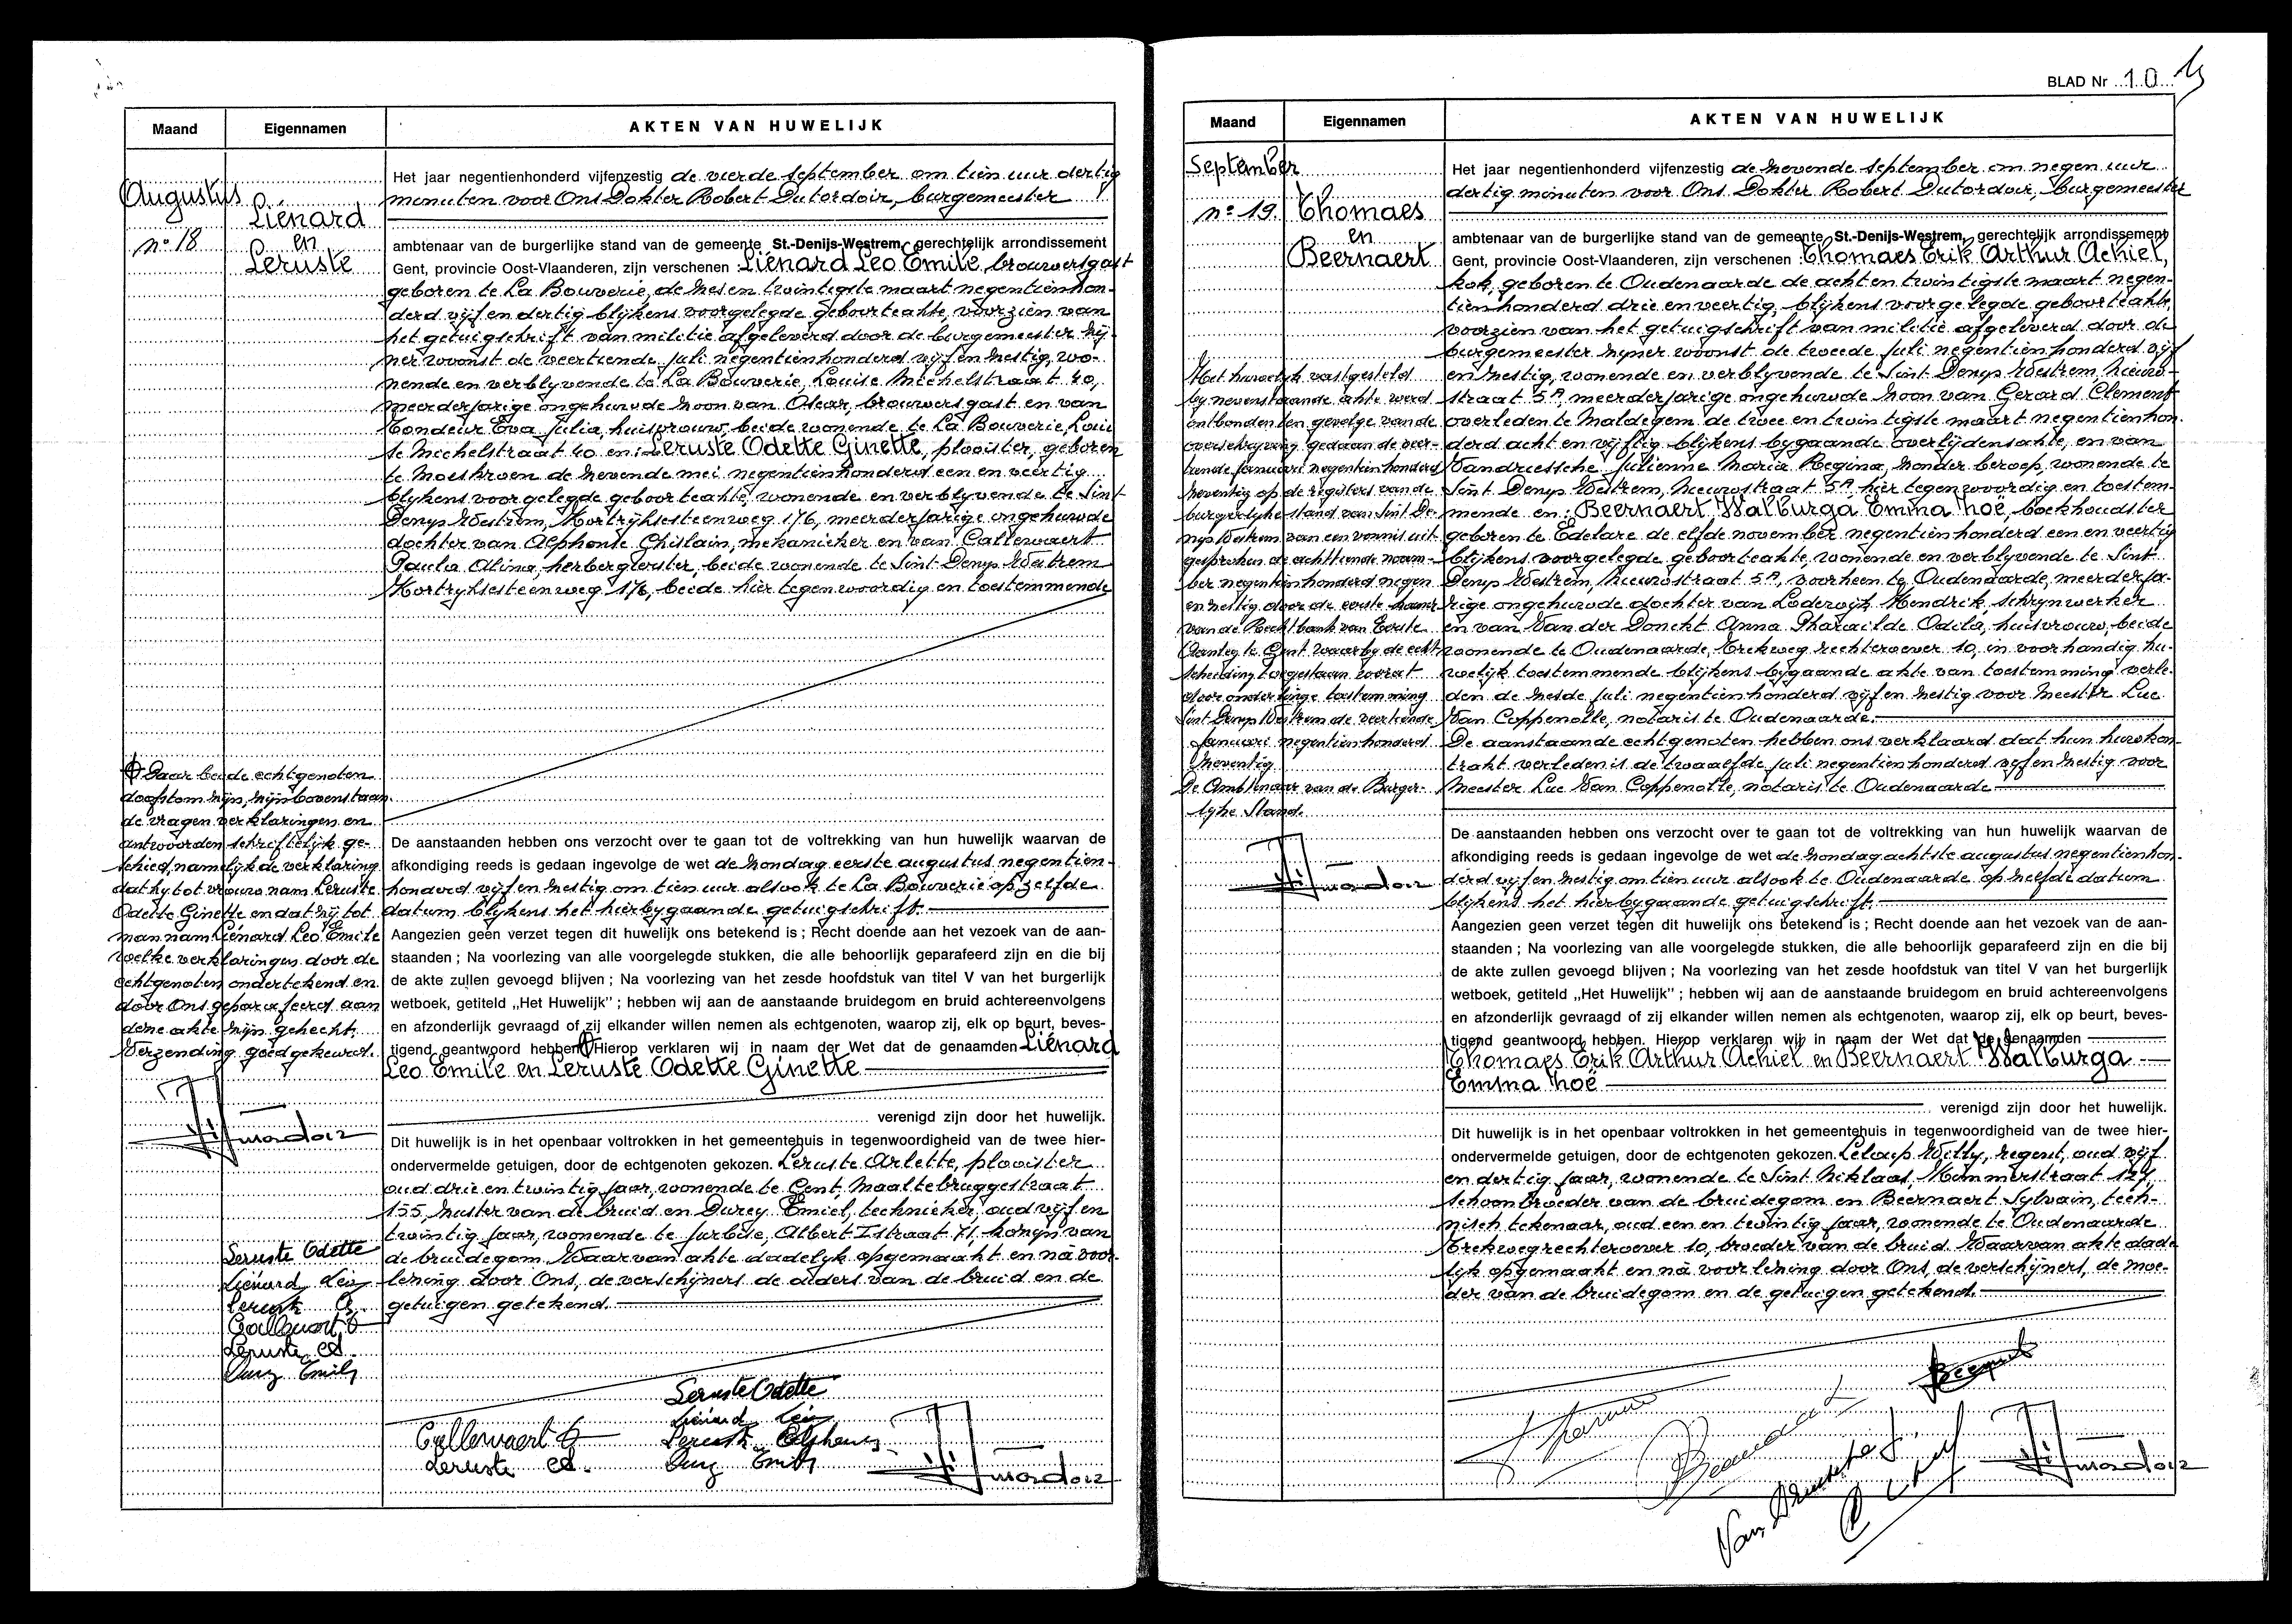 Maand
Eigennamen
AKTEN VAN HUWELIJK
Augustus
n° 18
Liénard
en
Leruste
Het jaar negentienhonderd vijfenzestig de vierde september om tien uur dertig
minuten voor Ons Dokter Robert Dutordoir, burgemeester
ambtenaar van de burgerlijke stand van de gemeente St.-Denijs-Westrem, gerechtelijk arrondissement
Gent, provincie Oost-Vlaanderen, zijn verschenen : Liénard Leo Emile, brouwersgast
geboren te La Bouverie, de zes en twintigste maart negentienhon-
derd vijf en dertig blijkens voorgelegde geboorteakte, voorzien van
het getuigschrift van militie afgeleverd door de burgemeester zij-
ner woonst de veertiende juli negentienhonderd vijf en zestig, wo-
nende en verblyvende te La Bouverie, Louise Michelstraat 40,
meerderjarige ongehuwde zoon van Oscar, brouwersgast en van
Tondeur Eva Julia, huisvrouw, beide wonende te La Bouverie, Loui
se Michelstraat 40 en : Leruste Odette Ginette, plooister, geboren
te Moeskroen de zevende mei negentienhonderd een en veertig
blijkens voorgelegde geboorteakte, wonende en verblyvende te Sint
Denys Westrem, Kortrijksesteenweg 176, meerderjarige ongehuwde
dochter van Alphonse Ghislain, mekanieker en van Callewaert
Paula Alina, herbergierster, beide wonende te Sint Denys Westrem
Kortryksesteenweg 176, beide hier tegenwoordig en toestemmende
Daar beide echtgenoten
doofstom zijn, zijn bovenstaan
de vragen verklaringen en
antwoorden schriftelijk ge-
schied, namelijk de verklaring
dat hy tot vrouw nam Leruste
Odette Ginette en dat zij tot
man nam Liénard Leo Emile
welke verklaringen door de
echtgenoten ondertekend en
door Ons geparafeerd aan
deze akte zijn gehecht.
Verzending goedgekeurd.
De aanstaanden hebben ons verzocht over te gaan tot de voltrekking van hun huwelijk waarvan de
afkondiging reeds is gedaan ingevolge de wet de zondag eerste augustus negentien-
honderd vijf en zestig om tien uur alsook te La Bouverie op zelfde
datum blijkens het hierbygaande getuigschrift.
Aangezien geen verzet tegen dit huwelijk ons betekend is ; Recht doende aan het vezoek van de aan-
staanden ; Na voorlezing van alle voorgelegde stukken, die alle behoorlijk geparafeerd zijn en die bij
de akte zullen gevoegd blijven ; Na voorlezing van het zesde hoofdstuk van titel V van het burgerlijk
wetboek, getiteld „Het Huwelijk" ; hebben wij aan de aanstaande bruidegom en bruid achtereenvolgens
en afzonderlijk gevraagd of zij elkander willen nemen als echtgenoten, waarop zij, elk op beurt, beves-
tigend geantwoord hebben. Hierop verklaren wij in naam der Wet dat de genaamden Liénard
Leo Emile en Leruste Odette Ginette
verenigd zijn door het huwelijk.
Dit huwelijk is in het openbaar voltrokken in het gemeentehuis in tegenwoordigheid van de twee hier-
ondervermelde getuigen, door de echtgenoten gekozen. Leruste Arlette, plooister
oud drie en twintig jaar, wonende te Gent, Maaltebruggestraat
155, zuster van de bruid en Durey Emiel, technieker, oud vijf en
twintig jaar, wonende te Jurbise, Albert I straat 71, kozijn van
de bruidegom. Waarvan akte dadelyk opgemaakt en na voor-
lezing door Ons, de verschijners de ouders van de bruid en de
getuigen getekend.
Leruste Odette
Liénard Léo
Leruste A.
Callewaert
Leruste
Emile
Leruste Odette
Liénard Léo
Callewaert
Leruste Alphonse
Leruste
Emile
BLAD Nr 10
Maand
Eigennamen
AKTEN VAN HUWELIJK
September
n° 19.
Thomaes
en
Beernaert
Het jaar negentienhonderd vijfenzestig de zevende september om negen uur
dertig minuten voor Ons Dokter Robert Dutordoir, burgemeester
ambtenaar van de burgerlijke stand van de gemeente St.-Denijs-Westrem, gerechtelijk arrondissement
Gent, provincie Oost-Vlaanderen, zijn verschenen : Thomaes Erik Arthur Achiel,
kok, geboren te Oudenaarde de acht en twintigste maart negen-
tienhonderd drie en veertig, blijkens voorgelegde geboorteakte,
voorzien van het getuigschrift van militie afgeleverd door de
burgemeester zijner woonst de tweede juli negentienhonderd vijf
en zestig, wonende en verblyvende te Sint Denys Westrem, Nieuw-
straat 5A, meerderjarige ongehuwde zoon van Gerard Clement
overleden te Maldegem de twee en twintigste maart negentienhon-
derd acht en vijftig blijkens bygaande overlijdensakte, en van
Vandriessche Julienne Maria Regina, zonder beroep, wonende te
Sint Denys Westrem, Nieuwstraat 5A, hier tegenwoordig en toestem-
mende en : Beernaert Walburga Emma Noë, boekhoudster
geboren te Edelare de elfde november negentienhonderd een en veertig
blijkens voorgelegde geboorteakte, wonende en verblyvende te Sint
Denys Westrem, Nieuwstraat 5A, voorheen te Oudenaarde, meerderja-
rige ongehuwde dochter van Lodewijk Hendrik, schrynwerker
en van Van der Donckt Anna Pharailde Odila, huisvrouw, beide
wonende te Oudenaarde, Trekweg rechteroever 10, in voorhandig hu-
welijk toestemmende blijkens bygaande akte van toestemming verle-
den de zesde juli negentienhonderd vijf en zestig voor Meester Luc
Van Coppenolle, notaris te Oudenaarde.
De aanstaande echtgenoten hebben ons verklaard dat hun huwkon-
trakt verleden is de twaalfde juli negentienhonderd vijf en zestig voor
Meester Luc Van Coppenolle, notaris te Oudenaarde
Het huwelijk vastgesteld
by nevenstaande akte werd
ontbonden ten gevolge van de
overschryving gedaan de veer-
tiende januari negentienhonderd
zeventig op de registers van de
burgerlyke stand van Sint De-
nys Westrem van een vonnis uit-
gesproken de achttiende novem-
ber negentienhonderd negen
en zestig door de eerste kamer
van de Rechtbank van Eerste
Aanleg te Gent waarby de echt-
scheiding toegestaan wordt
door onderlinge toestemming
Sint Denys Westrem de veertiende
januari negentienhonderd
zeventig.
De Ambtenaar van de Burger-
lyke Stand.
De aanstaanden hebben ons verzocht over te gaan tot de voltrekking van hun huwelijk waarvan de
afkondiging reeds is gedaan ingevolge de wet de zondag achtste augustus negentienhon-
derd vijf en zestig om tien uur alsook te Oudenaarde op zelfde datum
blijkens het hierbygaande getuigschrift.
Aangezien geen verzet tegen dit huwelijk ons betekend is ; Recht doende aan het vezoek van de aan-
staanden ; Na voorlezing van alle voorgelegde stukken, die alle behoorlijk geparafeerd zijn en die bij
de akte zullen gevoegd blijven ; Na voorlezing van het zesde hoofdstuk van titel V van het burgerlijk
wetboek, getiteld „Het Huwelijk" ; hebben wij aan de aanstaande bruidegom en bruid achtereenvolgens
en afzonderlijk gevraagd of zij elkander willen nemen als echtgenoten, waarop zij, elk op beurt, beves-
tigend geantwoord hebben. Hierop verklaren wij in naam der Wet dat de genaamden
Thomaes Erik Arthur Achiel en Beernaert Walburga
Emma Noë
verenigd zijn door het huwelijk.
Dit huwelijk is in het openbaar voltrokken in het gemeentehuis in tegenwoordigheid van de twee hier-
ondervermelde getuigen, door de echtgenoten gekozen. Leloup Willy, regent, oud vijf
en dertig jaar, wonende te Sint Niklaas, Kammerstraat 127,
schoonbroeder van de bruidegom en Beernaert Sylvain, tech-
nisch tekenaar, oud een en twintig jaar, wonende te Oudenaarde
Trekweg rechteroever 10, broeder van de bruid. Waarvan akte dade-
lijk opgemaakt en na voorlezing door Ons, de verschijners, de moe-
der van de bruidegom en de getuigen getekend.